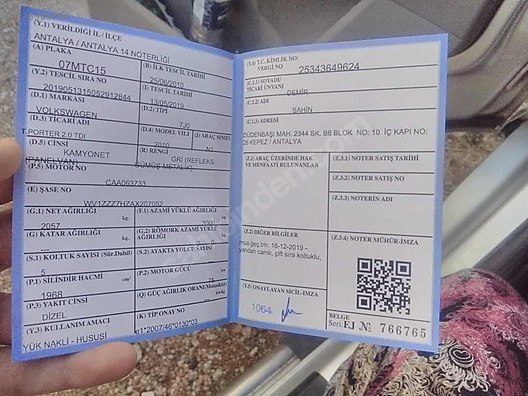 (Y.1) VERİLDİĞİ İL / İLÇE
ANTALYA / ANTALYA 14 NOTERLİĞİ
(A) PLAKA
07MTC15
(B) İLK TESCİL TARİHİ
25/06/2010
(Y.2) TESCİL SIRA NO
2019051315052912844
(I) TESCİL TARİHİ
13/05/2019
(D.1) MARKASI
VOLKSWAGEN
(D.2) TİPİ
7J0
(D.3) TİCARİ ADI
T.PORTER 2.0 TDI
(D.4) MODEL YILI
2010
(J) ARAÇ SINIFI
N1
(D.5) CİNSİ
KAMYONET
(PANELVAN)
(R) RENGİ
GRİ (REFLEKS
GÜMÜŞ METALİK)
(P.5) MOTOR NO
CAA063733
(E) ŞASE NO
WV1ZZZ7HZAX207052
(G.1) NET AĞIRLIĞI
2057 kg.
(F.1) AZAMİ YÜKLÜ AĞIRLIĞI
kg.
(G) KATAR AĞIRLIĞI
kg.
(G.2) RÖMORK AZAMİ YÜKLÜ
AĞIRLIĞI
kg.
(S.1) KOLTUK SAYISI (Sür.Dahil)
5
(S.2) AYAKTA YOLCU SAYISI
(P.1) SİLİNDİR HACMİ
1968 cm³
(P.2) MOTOR GÜCÜ
(P.3) YAKIT CİNSİ
DİZEL
(Q) GÜÇ AĞIRLIK ORANI
(Y.3) KULLANIM AMACI
YÜK NAKLİ - HUSUSİ
(K) TİP ONAY NO
(Y.4) T.C. KİMLİK NO/
VERGİ NO
25343649624
(C.1.1) SOYADI/
TİCARİ ÜNVANI
DEMİR
(C.1.2) ADI
SAHİN
MAH. 2344 SK. B6 BLOK NO: 10 İÇ KAPI NO:
26 KEPEZ / ANTALYA
(Z.1) ARAÇ ÜZERİNDE HAK
VE MENFAATİ BULUNANLAR
(Z.3.1) NOTER SATIŞ TARİHİ
(Z.3.2) NOTER SATIŞ NO
(Z.3.3) NOTERİN ADI
(Z.2) DİĞER BİLGİLER
mua geç.trh: 16-12-2019 -
yandan camlı, çift sıra koltuklu,
(Z.3.4) NOTER MÜHÜR-İMZA
(Y.5) ONAYLAYAN SİCİL-İMZA
1064
BELGE
Seri: EJ № 766765